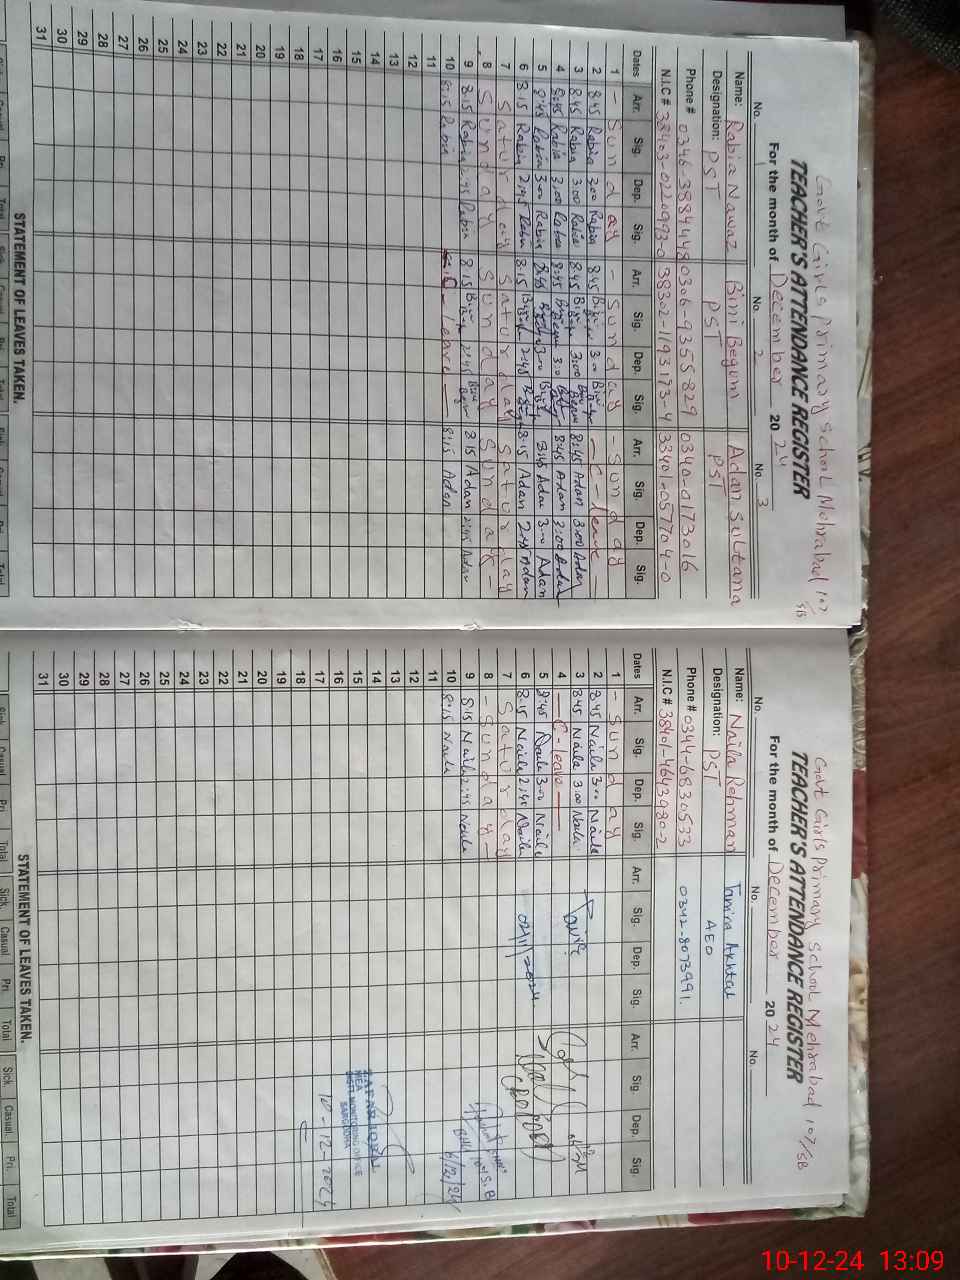 Govt Girls primary school Mehrabad 107/SB
TEACHER'S ATTENDANCE REGISTER
For the month of December 20 24
No. No. 2 No. 3
Name: Rabia Nawaz Bini Begum Adan Sultana
Designation: PST PST PST
Phone # 0346-3884448 0306-9355829 0340-0173016
N.I.C # 38403-0220993-0 38302-1193173-4 33401-057704-0
Dates Arr. Sig. Dep. Sig. Arr. Sig. Dep. Sig. Arr. Sig. Dep. Sig.
1 - Sunday - Sunday - Sunday
2 8:45 Rabia 3:00 Rabia 8:45 Bini Begum 3:00 Bini Begum - C-leave -
3 8:45 Rabia 3:00 Rabia 8:45 Bini Begum 3:00 Bini Begum 8:45 Adan 3:00 Adan
4 8:45 Rabia 3:00 Rabia 8:45 Bini Begum 3:00 Bini Begum 8:45 Adan 3:00 Adan
5 8:45 Rabia 3:00 Rabia 8:45 Bini Begum 3:00 Bini Begum 8:45 Adan 3:00 Adan
6 8:15 Rabia 2:45 Rabia 8:15 Bini Begum 2:45 Bini Begum 8:15 Adan 2:45 Adan
7 Saturday Saturday Saturday
8 Sunday Sunday Sunday -
9 8:15 Rabia 2:45 Rabia 8:15 Bini Begum 2:45 Bini Begum 8:15 Adan 2:45 Adan
10 8:15 Rabia C-leave - 8:15 Adan
11
12
13
14
15
16
17
18
19
20
21
22
23
24
25
26
27
28
29
30
31
STATEMENT OF LEAVES TAKEN.
Sick Casual Pri. Total Sick Casual Pri. Total
Govt Girls primary school Mehrabad 107/SB
TEACHER'S ATTENDANCE REGISTER
For the month of December 20 24
No. No. No.
Name: Naila Rehman Tamira Akhtar
Designation: PST AEO
Phone # 0344-6830533 0342-8073991.
N.I.C # 38401-4643980-2
Dates Arr. Sig. Dep. Sig. Arr. Sig. Dep. Sig. Arr. Sig. Dep. Sig.
1 - Sunday
2 8:45 Naila 3:00 Naila
3 8:45 Naila 3:00 Naila
4 - C-leave -
5 8:45 Naila 3:00 Naila
6 8:15 Naila 2:45 Naila
7 Saturday
8 - Sunday -
9 8:15 Naila 2:45 Naila
10 8:15 Naila
11
12
13
14
15
16
17
18
19
20
21
22
23
24
25
26
27
28
29
30
31
ZAFAR IQBAL
MEA
DISTT MONITORING OFFICE
SARGODHA
10-12-2024
STATEMENT OF LEAVES TAKEN.
Sick. Casual Pri. Total Sick. Casual. Pri. Total
10-12-24 13:09